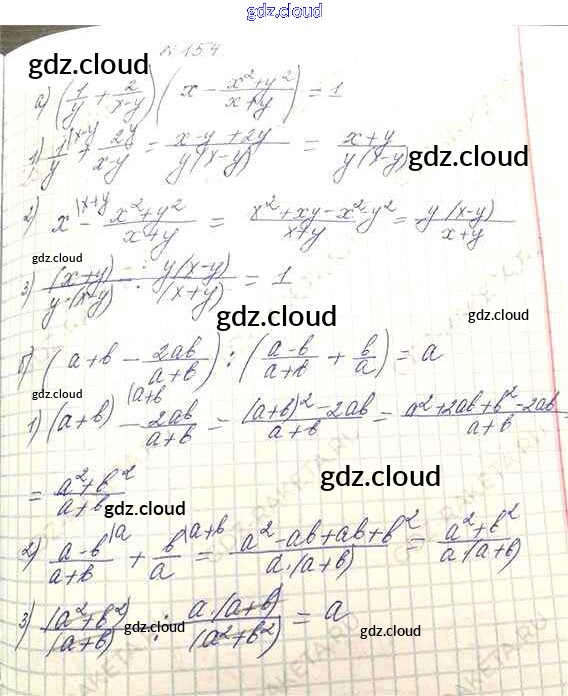 gdz.cloud
№ 154
gdz.cloud
а) (1/y + 2/(x-y)) (x - (x²+y²)/(x+y)) = 1
1) 1/y |x-y + 2y/(x-y) = (x-y+2y)/(y(x-y)) = (x+y)/(y(x-y))
gdz.cloud
2) x |x+y - (x²+y²)/(x+y) = (x²+xy-x²-y²)/(x+y) = y(x-y)/(x+y)
gdz.cloud
3) (x+y)/(y·(x-y)) : y(x-y)/(x+y) = 1
gdz.cloud
б) (a+b - 2ab/(a+b)) : ((a-b)/(a+b) + b/a) = a
gdz.cloud
1) (a+b) |a+b - 2ab/(a+b) = ((a+b)²-2ab)/(a+b) = (a²+2ab+b²-2ab)/(a+b) =
= (a²+b²)/(a+b)
gdz.cloud
gdz.cloud
2) (a-b)/(a+b) |a + b/a |a+b = (a²-ab+ab+b²)/(a·(a+b)) = (a²+b²)/(a·(a+b))
3) (a²+b²)/(a+b) : a·(a+b)/(a²+b²) = a
gdz.cloud
gdz.cloud